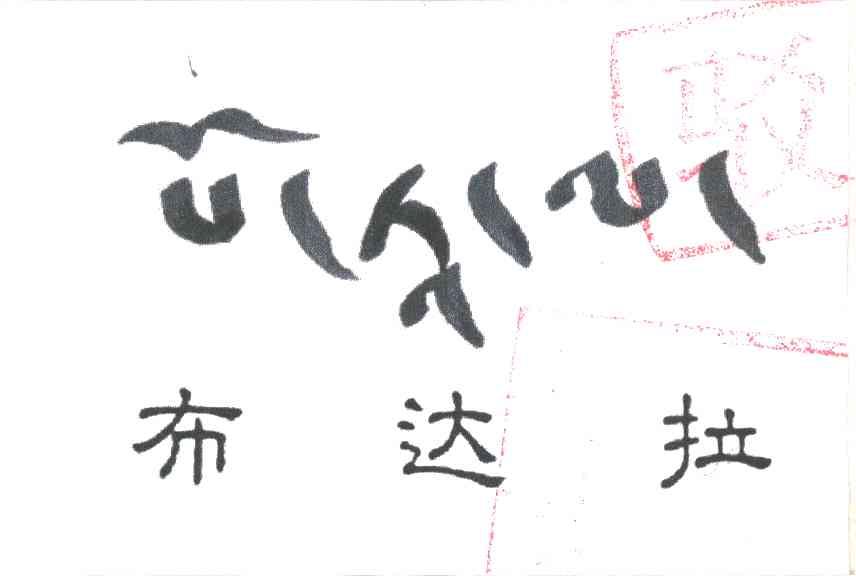 པོ་ཏ་ལ་
布达拉